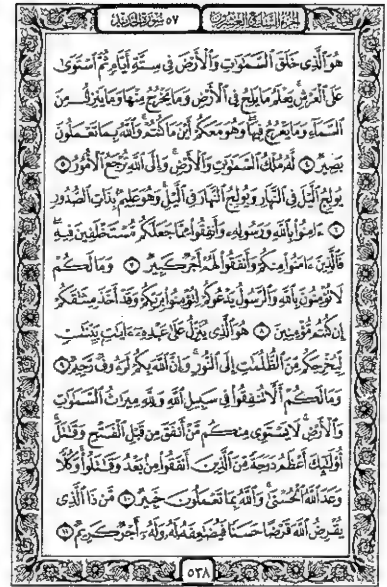 الجزء السابع والعشرون ٥٧ سورة الحديد
هُوَ ٱلَّذِى خَلَقَ ٱلسَّمَٰوَٰتِ وَٱلْأَرْضَ فِى سِتَّةِ أَيَّامٍ ثُمَّ ٱسْتَوَىٰ
عَلَى ٱلْعَرْشِ ۚ يَعْلَمُ مَا يَلِجُ فِى ٱلْأَرْضِ وَمَا يَخْرُجُ مِنْهَا وَمَا يَنزِلُ مِنَ
ٱلسَّمَآءِ وَمَا يَعْرُجُ فِيهَا ۖ وَهُوَ مَعَكُمْ أَيْنَ مَا كُنتُمْ ۚ وَٱللَّهُ بِمَا تَعْمَلُونَ
بَصِيرٌ ٤ لَّهُۥ مُلْكُ ٱلسَّمَٰوَٰتِ وَٱلْأَرْضِ ۚ وَإِلَى ٱللَّهِ تُرْجَعُ ٱلْأُمُورُ ٥
يُولِجُ ٱلَّيْلَ فِى ٱلنَّهَارِ وَيُولِجُ ٱلنَّهَارَ فِى ٱلَّيْلِ ۚ وَهُوَ عَلِيمٌۢ بِذَاتِ ٱلصُّدُورِ
٦ ءَامِنُوا۟ بِٱللَّهِ وَرَسُولِهِۦ وَأَنفِقُوا۟ مِمَّا جَعَلَكُم مُّسْتَخْلَفِينَ فِيهِ ۖ
فَٱلَّذِينَ ءَامَنُوا۟ مِنكُمْ وَأَنفَقُوا۟ لَهُمْ أَجْرٌ كَبِيرٌ ٧ وَمَا لَكُمْ
لَا تُؤْمِنُونَ بِٱللَّهِ ۙ وَٱلرَّسُولُ يَدْعُوكُمْ لِتُؤْمِنُوا۟ بِرَبِّكُمْ وَقَدْ أَخَذَ مِيثَٰقَكُمْ
إِن كُنتُم مُّؤْمِنِينَ ٨ هُوَ ٱلَّذِى يُنَزِّلُ عَلَىٰ عَبْدِهِۦٓ ءَايَٰتٍۭ بَيِّنَٰتٍ
لِّيُخْرِجَكُم مِّنَ ٱلظُّلُمَٰتِ إِلَى ٱلنُّورِ ۚ وَإِنَّ ٱللَّهَ بِكُمْ لَرَءُوفٌ رَّحِيمٌ ٩
وَمَا لَكُمْ أَلَّا تُنفِقُوا۟ فِى سَبِيلِ ٱللَّهِ وَلِلَّهِ مِيرَٰثُ ٱلسَّمَٰوَٰتِ
وَٱلْأَرْضِ ۚ لَا يَسْتَوِى مِنكُم مَّنْ أَنفَقَ مِن قَبْلِ ٱلْفَتْحِ وَقَٰتَلَ ۚ
أُو۟لَٰٓئِكَ أَعْظَمُ دَرَجَةً مِّنَ ٱلَّذِينَ أَنفَقُوا۟ مِنۢ بَعْدُ وَقَٰتَلُوا۟ ۚ وَكُلًّا
وَعَدَ ٱللَّهُ ٱلْحُسْنَىٰ ۚ وَٱللَّهُ بِمَا تَعْمَلُونَ خَبِيرٌ ١٠ مَّن ذَا ٱلَّذِى
يُقْرِضُ ٱللَّهَ قَرْضًا حَسَنًا فَيُضَٰعِفَهُۥ لَهُۥ وَلَهُۥٓ أَجْرٌ كَرِيمٌ ١١
٥٣٨